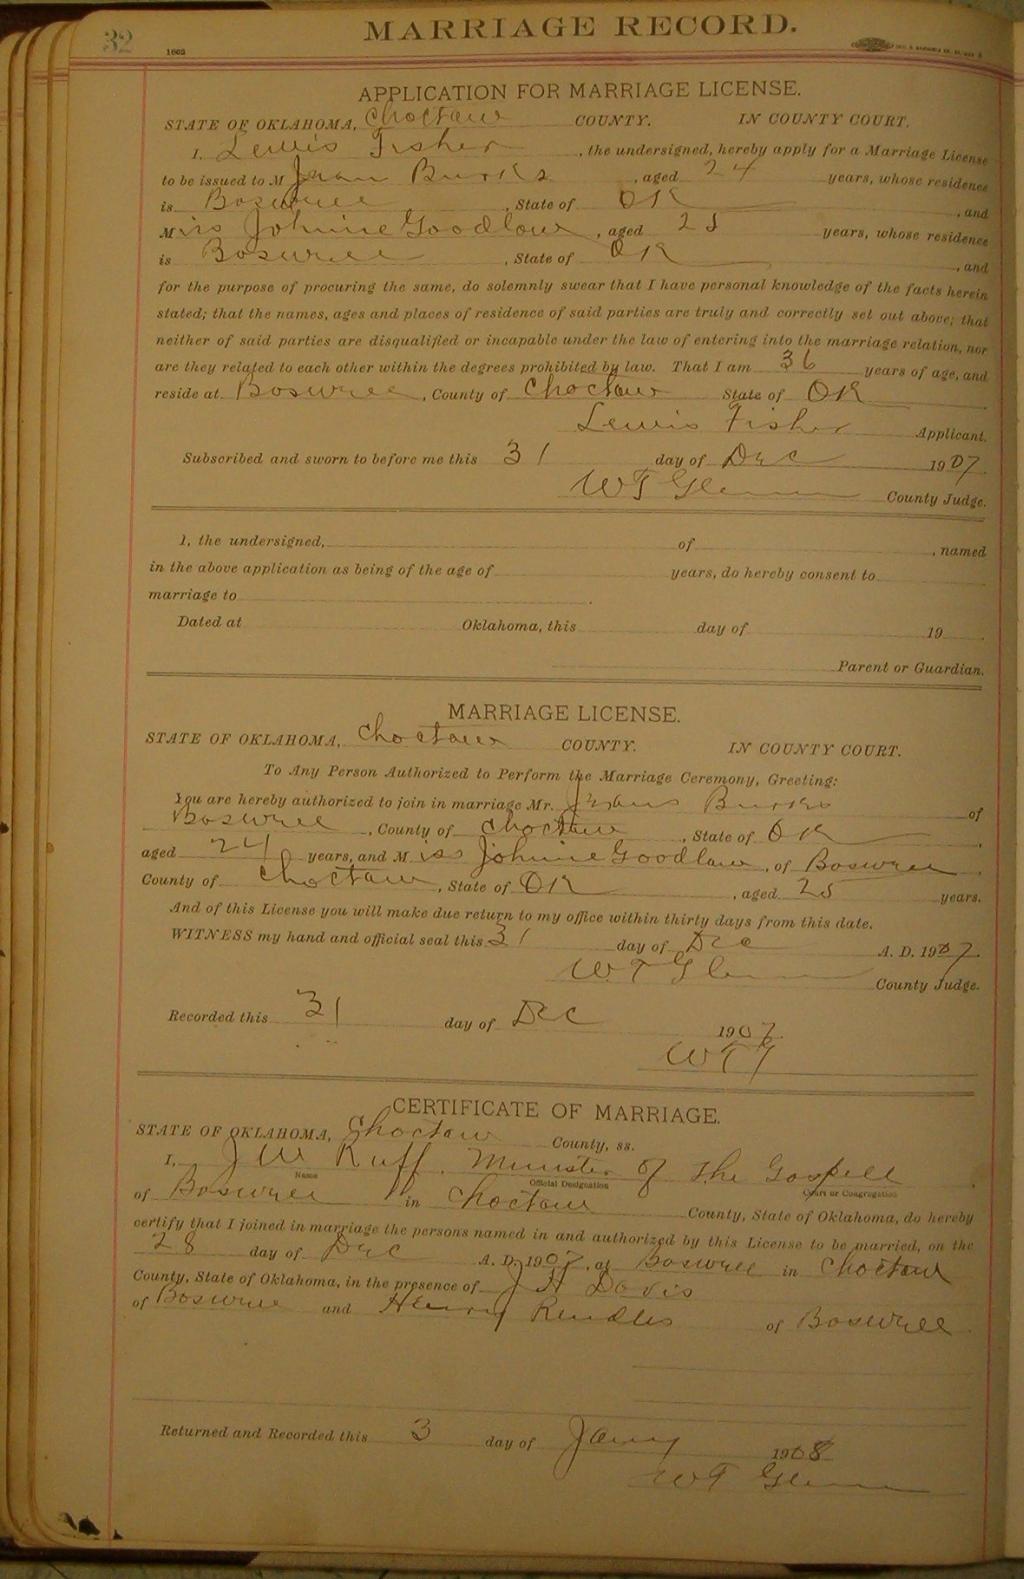 32
1602
MARRIAGE RECORD.
APPLICATION FOR MARRIAGE LICENSE.
STATE OF OKLAHOMA, Choctaw COUNTY. IN COUNTY COURT.
I, Lewis Fisher, the undersigned, hereby apply for a Marriage License
to be issued to M Burks, aged 24 years, whose residence
is Boswell, State of OK, and
Miss Johnnie Goodlow, aged 25 years, whose residence
is Boswell, State of OK, and
for the purpose of procuring the same, do solemnly swear that I have personal knowledge of the facts herein
stated; that the names, ages and places of residence of said parties are truly and correctly set out above; that
neither of said parties are disqualified or incapable under the law of entering into the marriage relation, nor
are they related to each other within the degrees prohibited by law. That I am 36 years of age, and
reside at Boswell, County of Choctaw State of OK
Lewis Fisher Applicant.
Subscribed and sworn to before me this 31 day of Dec 1907.
WT Glenn County Judge.
I, the undersigned, of , named
in the above application as being of the age of years, do hereby consent to
marriage to .
Dated at Oklahoma, this day of 19 .
Parent or Guardian.
MARRIAGE LICENSE.
STATE OF OKLAHOMA, Choctaw COUNTY. IN COUNTY COURT.
To Any Person Authorized to Perform the Marriage Ceremony, Greeting:
You are hereby authorized to join in marriage Mr. Burks of
Boswell, County of Choctaw, State of OK,
aged 24 years, and Miss Johnie Goodlaw, of Boswell
County of Choctaw, State of OK, aged 25 years.
And of this License you will make due return to my office within thirty days from this date.
WITNESS my hand and official seal this 31 day of Dec A. D. 1907.
W. T Glenn County Judge.
Recorded this 31 day of Dec 1907.
WTG
CERTIFICATE OF MARRIAGE.
STATE OF OKLAHOMA, Choctaw County, ss.
I, J W Ruff, Minister of The Gospell
Name Official Designation Court or Congregation
of Boswell in Choctaw County, State of Oklahoma, do hereby
certify that I joined in marriage the persons named in and authorized by this License to be married, on the
28 day of Dec A. D. 1907, at Boswell in Choctaw
County, State of Oklahoma, in the presence of J H Davis
of Boswell and Henry of Boswell
Returned and Recorded this 3 day of Jany 1908
WT Glenn